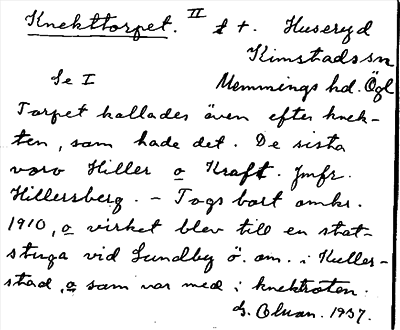 Knekttorpet. II f. t. Huseryd
Kimstads sn
Se I Memmings hd. Ögl
Torpet kallades även efter knek-
ten, som hade det. De sista
voro Hiller o Kraft. Jmfr.
Hillersberg. - Togs bort omkr.
1910, o virket blev till en stat-
stuga vid Lundby ö. om. i Kuller-
stad, o som var med i knektroten.
G. Olson. 1937.